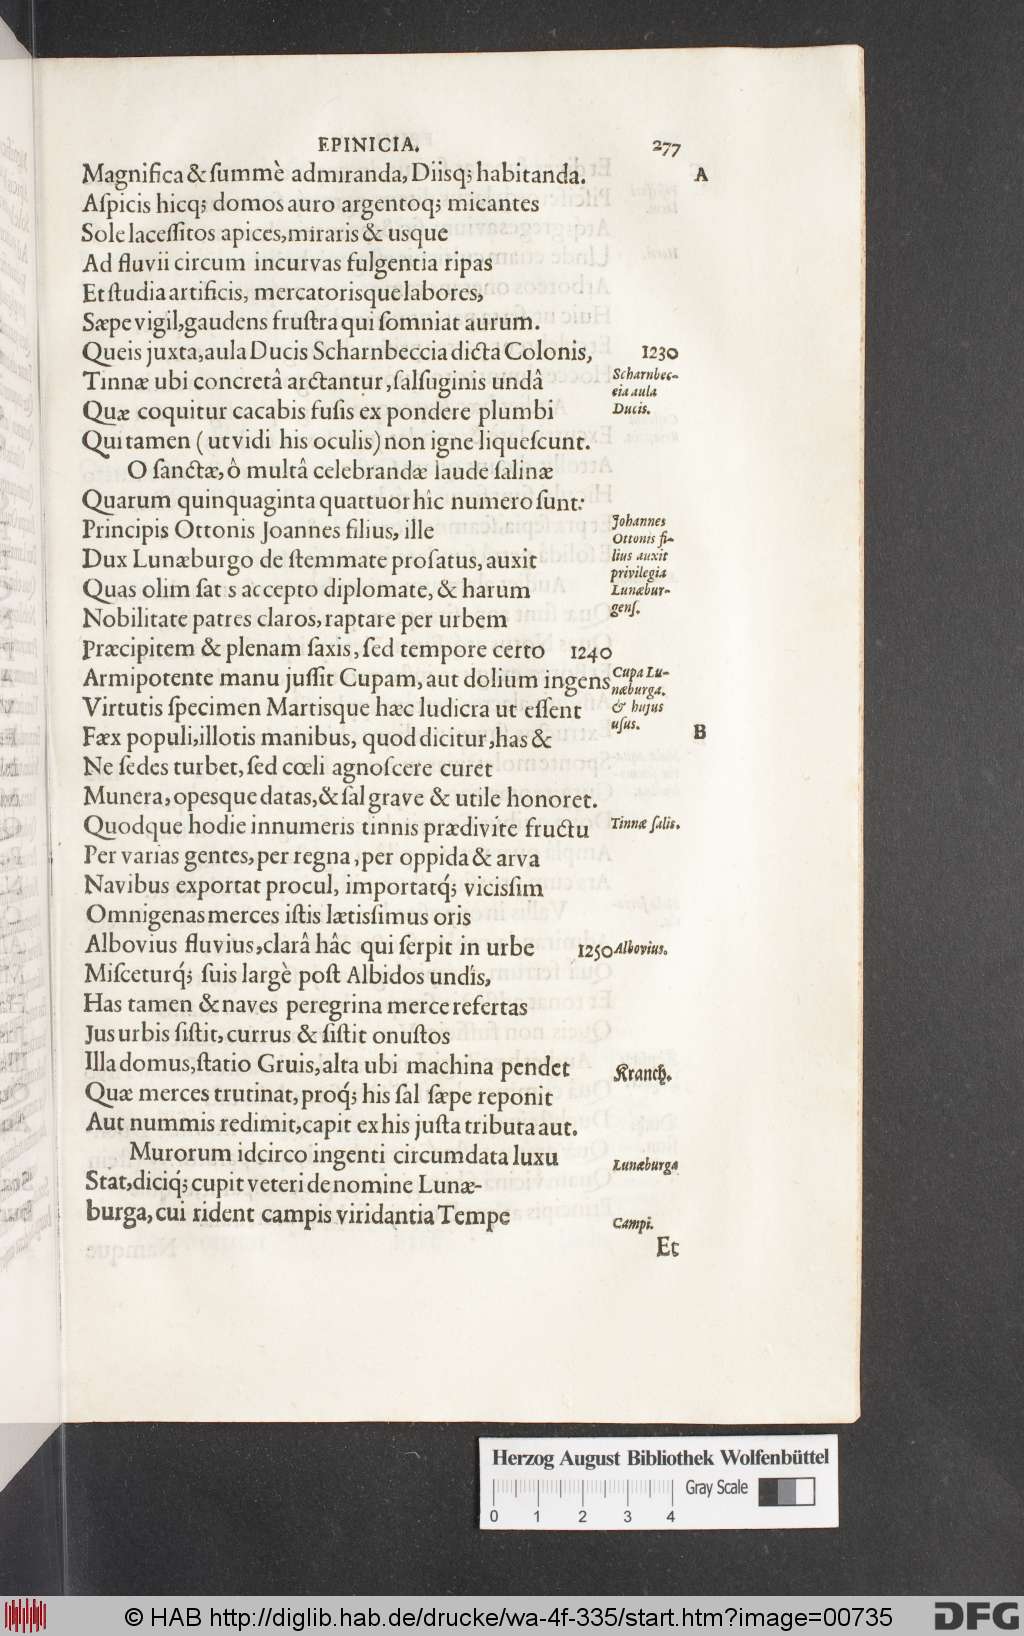 EPINICIA. 277
Magnifica & ſummè admiranda, Diisq; habitanda. A
Aſpicis hicq; domos auro argentoq; micantes
Sole laceſſitos apices, miraris & usque
Ad fluvii circum incurvas fulgentia ripas
Et ſtudia artificis, mercatorisque labores,
Sæpe vigil, gaudens fruſtra qui ſomniat aurum.
Queis juxta, aula Ducis Scharnbeccia dicta Colonis, 1230
Tinnæ ubi concretâ arctantur, ſalſuginis undâ
Scharnbec-
cia aula
Ducis.
Quæ coquitur cacabis fuſis ex pondere plumbi
Qui tamen ( ut vidi his oculis) non igne liqueſcunt.
O ſanctæ, ô multâ celebrandæ laude ſalinæ
Quarum quinquaginta quattuor hîc numero ſunt:
Principis Ottonis Joannes filius, ille
Dux Lunæburgo de ſtemmate proſatus, auxit
Quas olim ſat s accepto diplomate, & harum
Johannes
Ottonis fi-
lius auxit
privilegia
Lunæbur-
genſ.
Nobilitate patres claros, raptare per urbem
Præcipitem & plenam ſaxis, ſed tempore certo 1240
Armipotente manu juſſit Cupam, aut dolium ingens
Virtutis ſpecimen Martisque hæc ludicra ut eſſent
Cupa Lu-
næburga.
& hujus
uſus.
Fæx populi, illotis manibus, quod dicitur, has & B
Ne ſedes turbet, ſed cœli agnoſcere curet
Munera, opesque datas, & ſal grave & utile honoret.
Quodque hodie innumeris tinnis prædivite fructu Tinnæ ſalis.
Per varias gentes, per regna, per oppida & arva
Navibus exportat procul, importatq́; vicisſim
Omnigenas merces iſtis lætisſimus oris
Albovius fluvius, clarâ hâc qui ſerpit in urbe 1250 Albovius.
Miſceturq́; ſuis largè poſt Albidos undis,
Has tamen & naves peregrina merce refertas
Jus urbis ſiſtit, currus & ſiſtit onuſtos
Illa domus, ſtatio Gruis, alta ubi machina pendet Kranch.
Quæ merces trutinat, proq́; his ſal ſæpe reponit
Aut nummis redimit, capit ex his juſta tributa aut.
Murorum idcirco ingenti circumdata luxu Lunæburga
Stat, diciq́; cupit veteri de nomine Lunæ-
burga, cui rident campis viridantia Tempe Campi.
Et
Herzog August Bibliothek Wolfenbüttel
Gray Scale
0 1 2 3 4
© HAB http://diglib.hab.de/drucke/wa-4f-335/start.htm?image=00735 DFG